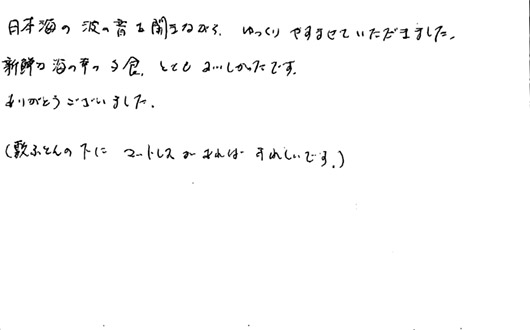 日本海の波の音を聞きながら、ゆっくりやすませていただきました。
新鮮な海の幸の夕食、とてもおいしかったです。
ありがとうございました。
(敷ふとんの下にマットレスがあれば うれしいです。)